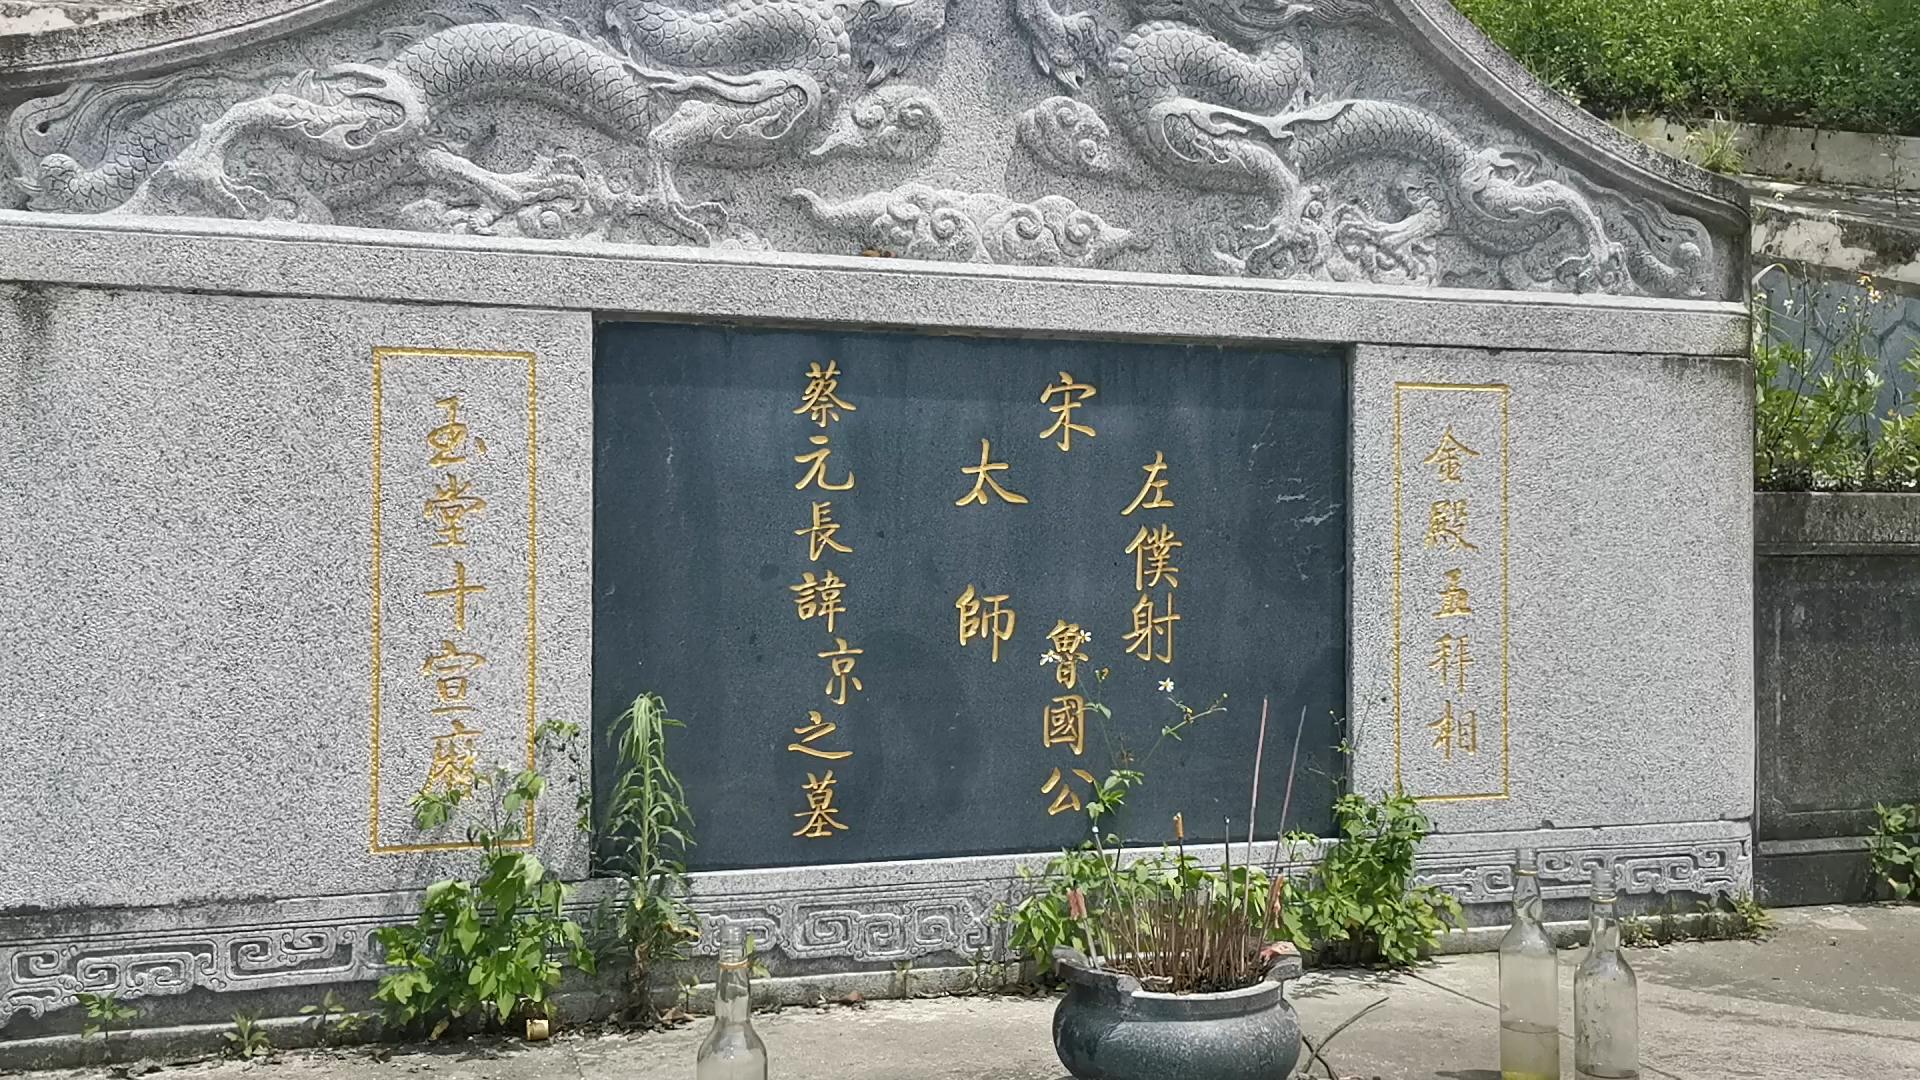 金殿五拜相
宋
左僕射
太師
魯國公
蔡元長諱京之墓
玉堂十宣麻